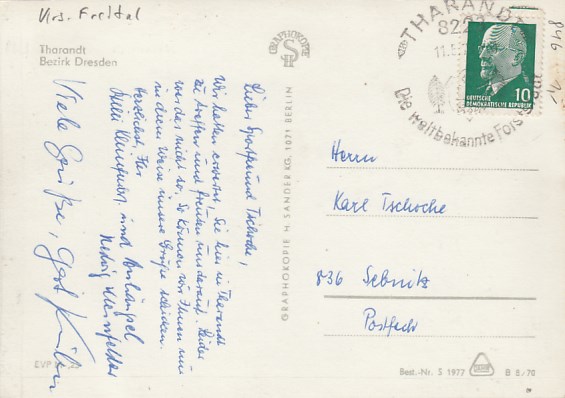 Krs. Freital
Tharandt
Bezirk Dresden
GRAPHOKOPIE
Lieber Sportfreund Tschoche,
Wir hatten erwartet, Sie hier in Tharandt
zu treffen und freuten uns darauf. Leider
wurde nichts so. So können wir Ihnen nur
in dieser Weise unsere Grüße schicken.
Herzlichst, Ihr
und Anhängsel
Hedwig
Viele Grüße, Gert
EVP
GRAPHOKOPIE H. SANDER KG, 1071 BERLIN
THARANDT
8223
Die weltbekannte Forststadt
10
DEUTSCHE
DEMOKRATISCHE REPUBLIK
846
Herrn
Karl Tschoche
836 Sebnitz
Postfach
Best.-Nr. S 1977
B 8/70